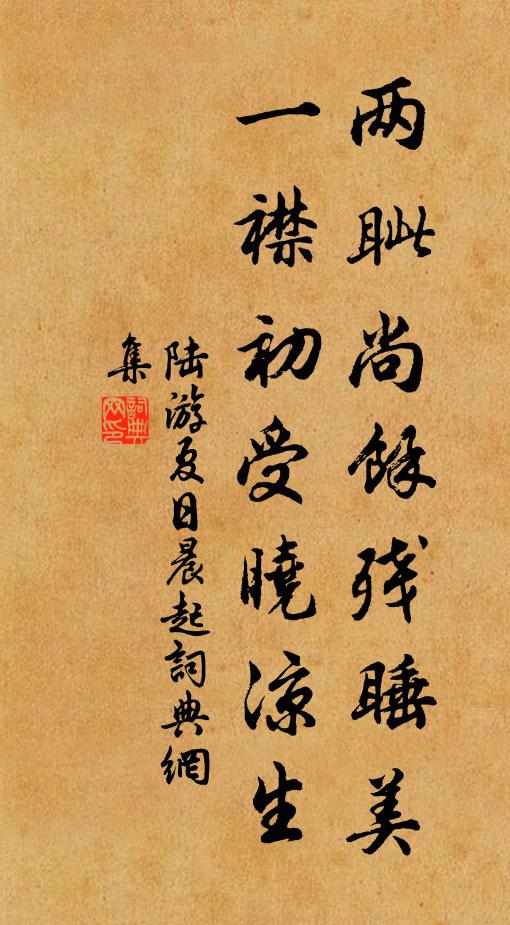 两眦尚馀残睡美
一襟初受曉凉生
陆游夏日晨起詞典網
集
詞典网印